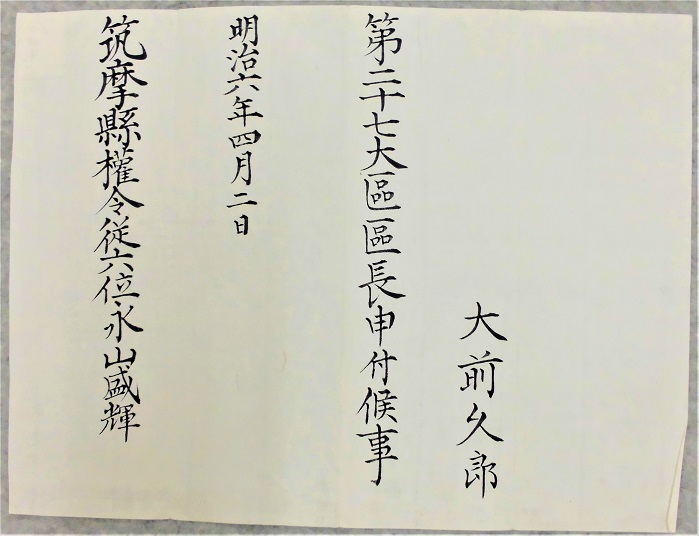 大前久郎
第二十七大區區長申付候事
明治六年四月二日
筑摩縣權令従六位永山盛輝